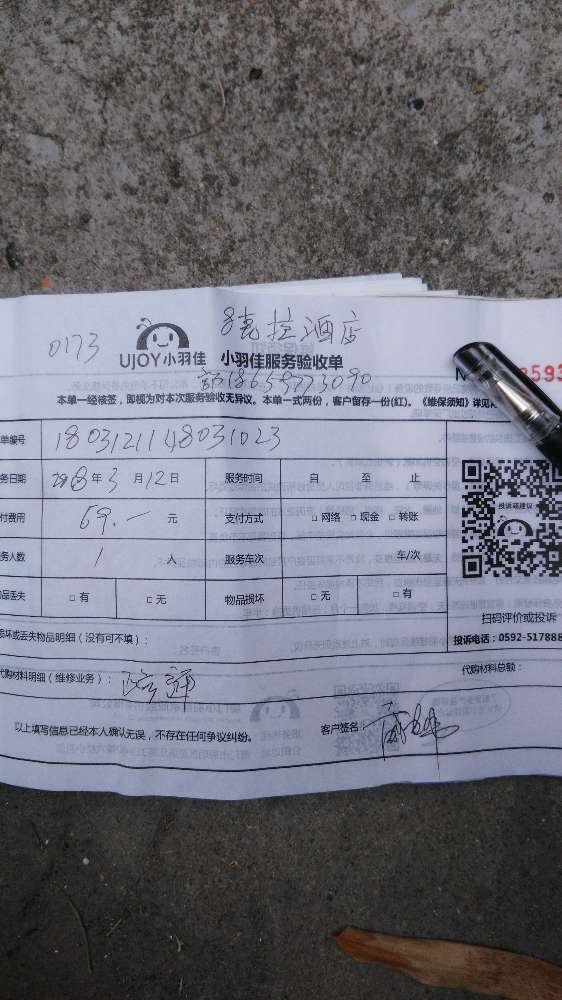 0173
8克拉酒店
UJOY小羽佳 小羽佳服务验收单
18659773090
本单一经核签，即视为对本次服务验收无异议。本单一式两份，客户留存一份(红)。《维保须知》详见
单编号 1803121148031023
务日期 2018年3月12日 服务时间 自 至 止
付费用 69.一 元 支付方式 □网络 □现金 □转账
务人数 1 人 服务车次 车/次
品丢失 □有 □无 物品损坏 □无 □有
投诉或建议
扫码评价或投诉
损坏或丢失物品明细（没有可不填）： 投诉电话：0592-517888
代购材料明细（维修业务）： 疏通 代购材料总额：
以上填写信息已经本人确认无误，不存在任何争议纠纷。 客户签名：